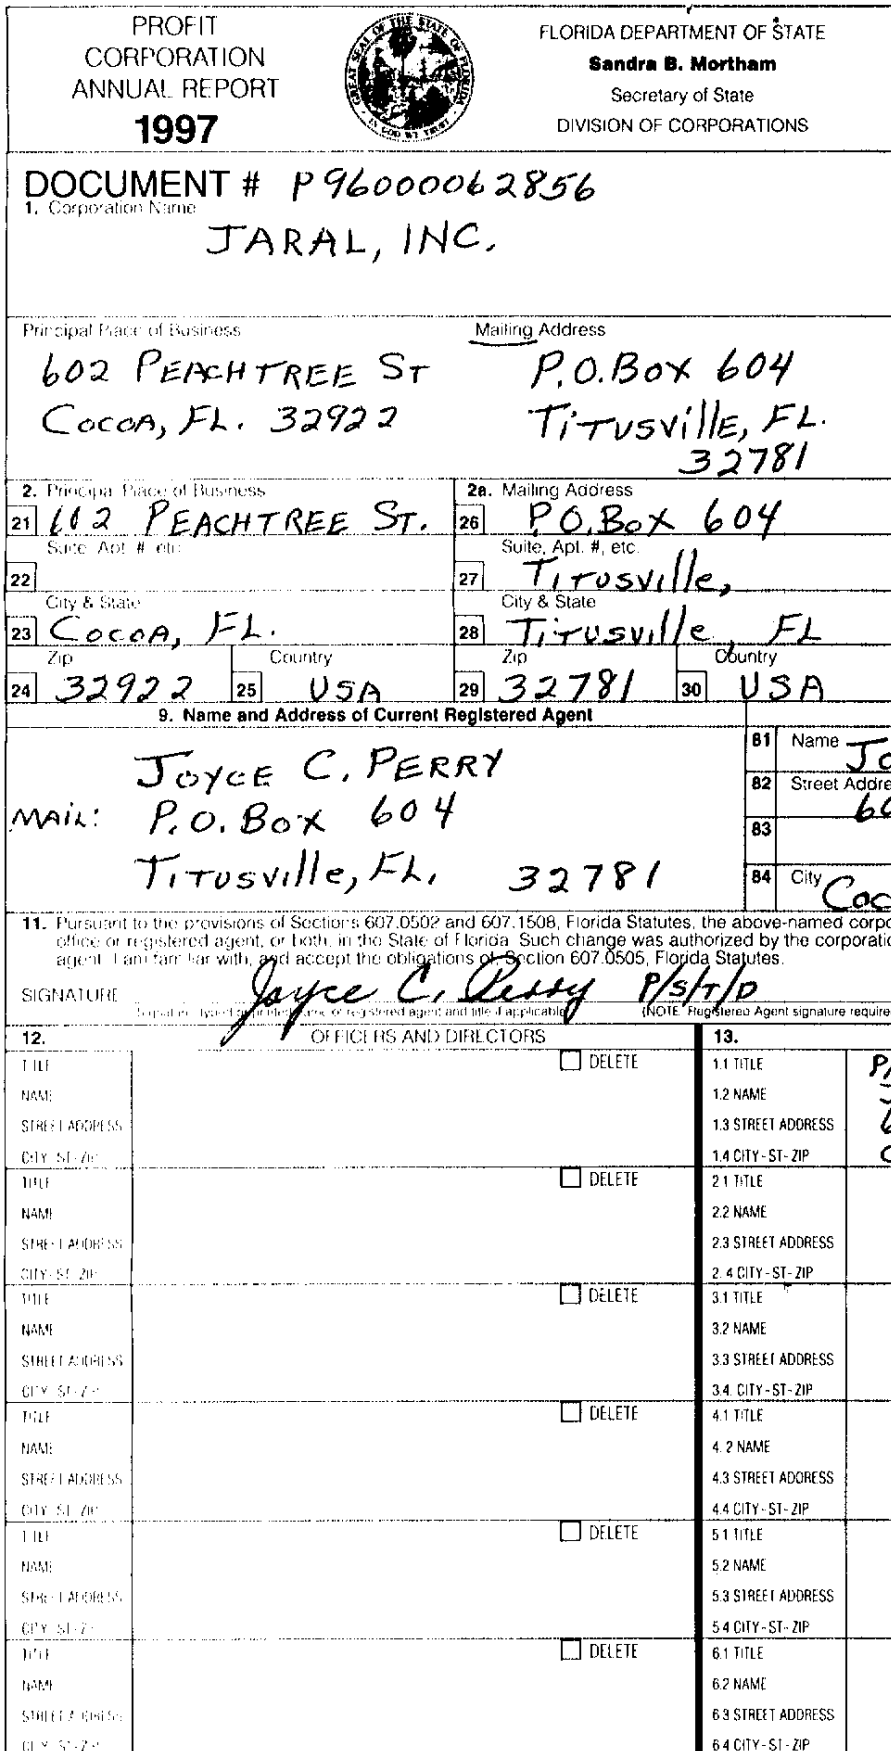 PROFIT
CORPORATION
ANNUAL REPORT
1997
GREAT SEAL OF THE STATE OF FLORIDA
IN GOD WE TRUST
FLORIDA DEPARTMENT OF STATE
Sandra B. Mortham
Secretary of State
DIVISION OF CORPORATIONS
DOCUMENT # P96000062856
1. Corporation Name
JARAL, INC.
Principal Place of Business
602 PEACHTREE ST
COCOA, FL. 32922
Mailing Address
P.O. BOX 604
TITUSVILLE, FL.
32781
2. Principal Place of Business
21 602 PEACHTREE ST.
Suite, Apt. #, etc.
22
City & State
23 COCOA, FL.
Zip
24 32922
Country
25 USA
2a. Mailing Address
26 P.O. BOX 604
Suite, Apt. #, etc.
27 TITUSVILLE,
City & State
28 TITUSVILLE, FL
Zip
29 32781
Country
30 USA
9. Name and Address of Current Registered Agent
JOYCE C. PERRY
MAIL: P.O. BOX 604
TITUSVILLE, FL. 32781
81 Name Jo
82 Street Addre
60
83
84 City Coc
11. Pursuant to the provisions of Sections 607.0502 and 607.1508, Florida Statutes, the above-named corpo
office or registered agent, or both, in the State of Florida. Such change was authorized by the corporatio
agent. I am familiar with, and accept the obligations of, Section 607.0505, Florida Statutes.
SIGNATURE Joyce C. Perry P/S/T/D
Signature, typed or printed name of registered agent and title if applicable (NOTE: Registered Agent signature require
12. OFFICERS AND DIRECTORS
13.
TITLE DELETE
NAME
STREET ADDRESS
CITY-ST-ZIP
1.1 TITLE P/
1.2 NAME J
1.3 STREET ADDRESS 6
1.4 CITY-ST-ZIP C
TITLE DELETE
NAME
STREET ADDRESS
CITY-ST-ZIP
2.1 TITLE
2.2 NAME
2.3 STREET ADDRESS
2.4 CITY-ST-ZIP
TITLE DELETE
NAME
STREET ADDRESS
CITY-ST-ZIP
3.1 TITLE
3.2 NAME
3.3 STREET ADDRESS
3.4. CITY-ST-ZIP
TITLE DELETE
NAME
STREET ADDRESS
CITY-ST-ZIP
4.1 TITLE
4.2 NAME
4.3 STREET ADDRESS
4.4 CITY-ST-ZIP
TITLE DELETE
NAME
STREET ADDRESS
CITY-ST-ZIP
5.1 TITLE
5.2 NAME
5.3 STREET ADDRESS
5.4 CITY-ST-ZIP
TITLE DELETE
NAME
STREET ADDRESS
CITY-ST-ZIP
6.1 TITLE
6.2 NAME
6.3 STREET ADDRESS
6.4 CITY-ST-ZIP